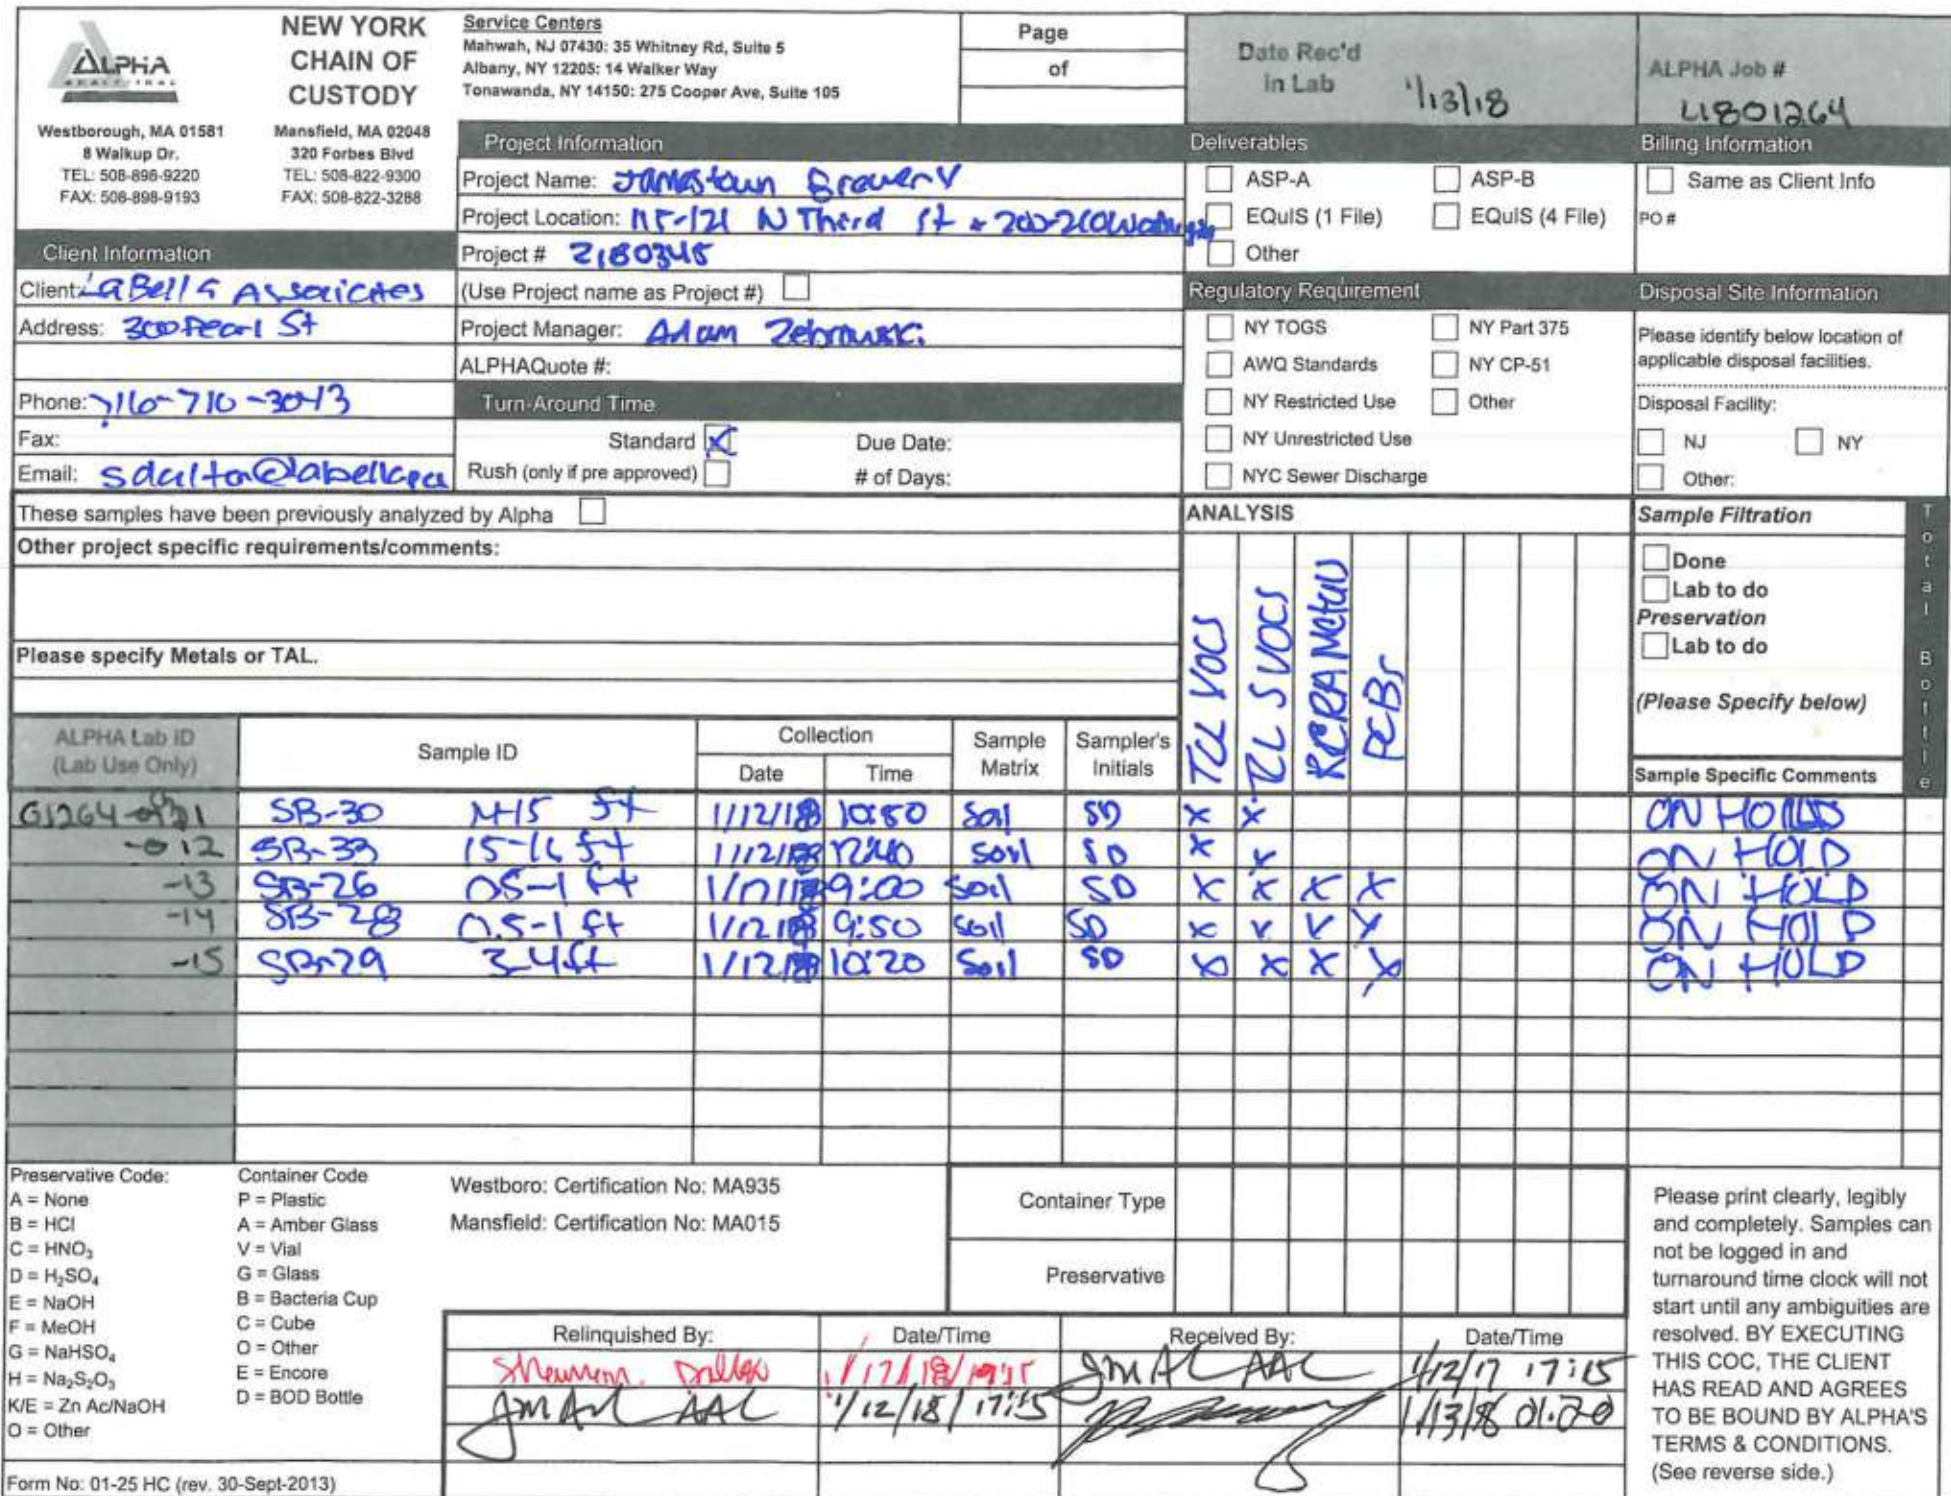 ALPHA
ANALYTICAL
NEW YORK
CHAIN OF
CUSTODY
Westborough, MA 01581
8 Walkup Dr.
TEL: 508-898-9220
FAX: 508-898-9193
Mansfield, MA 02048
320 Forbes Blvd
TEL: 508-822-9300
FAX: 508-822-3288
Service Centers
Mahwah, NJ 07430: 35 Whitney Rd, Suite 5
Albany, NY 12205: 14 Walker Way
Tonawanda, NY 14150: 275 Cooper Ave, Suite 105
Page
of
Date Rec'd
in Lab 1/13/18
ALPHA Job #
L1801264
Client Information
Client: LaBella Associates
Address: 300 Pearl St
Phone: 716-710-3043
Fax:
Email: sdalton@labellapc
Project Information
Project Name: Jamestown Brewery
Project Location: 115-121 N Third St + 200-210
Project # 2180345
(Use Project name as Project #)
Project Manager: Adam Zebrowski
ALPHAQuote #:
Turn-Around Time
Standard X Due Date:
Rush (only if pre approved) # of Days:
Deliverables
ASP-A ASP-B
EQuIS (1 File) EQuIS (4 File)
Other
Regulatory Requirement
NY TOGS NY Part 375
AWQ Standards NY CP-51
NY Restricted Use Other
NY Unrestricted Use
NYC Sewer Discharge
Billing Information
Same as Client Info
PO #
Disposal Site Information
Please identify below location of
applicable disposal facilities.
Disposal Facility:
NJ NY
Other:
These samples have been previously analyzed by Alpha
Other project specific requirements/comments:
Please specify Metals or TAL.
ANALYSIS
TCL VOCS
TCL SVOCS
RCRA Metals
PCBs
Sample Filtration
Done
Lab to do
Preservation
Lab to do
(Please Specify below)
Total Bottle
ALPHA Lab ID
(Lab Use Only)
Sample ID
Collection
Date Time
Sample
Matrix
Sampler's
Initials
Sample Specific Comments
SB-30 14-15 ft 1/12/18 10:50 Soil SD X X ON HOLD
-12 SB-33 15-16 ft 1/12/18 12:40 Soil SD X X ON HOLD
-13 SB-26 0.5-1 ft 1/12/18 9:00 Soil SD X X X X ON HOLD
-14 SB-28 0.5-1 ft 1/12/18 9:50 Soil SD X X X X ON HOLD
-15 SB-29 3-4 ft 1/12/18 10:20 Soil SD X X X X ON HOLD
Preservative Code:
A = None
B = HCl
C = HNO₃
D = H₂SO₄
E = NaOH
F = MeOH
G = NaHSO₄
H = Na₂S₂O₃
K/E = Zn Ac/NaOH
O = Other
Container Code
P = Plastic
A = Amber Glass
V = Vial
G = Glass
B = Bacteria Cup
C = Cube
O = Other
E = Encore
D = BOD Bottle
Westboro: Certification No: MA935
Mansfield: Certification No: MA015
Container Type
Preservative
Relinquished By: Date/Time Received By: Date/Time
AAL 1/12/17 17:15
AAL 1/12/18 / 17:15 1/13/18 01:20
Please print clearly, legibly
and completely. Samples can
not be logged in and
turnaround time clock will not
start until any ambiguities are
resolved. BY EXECUTING
THIS COC, THE CLIENT
HAS READ AND AGREES
TO BE BOUND BY ALPHA'S
TERMS & CONDITIONS.
(See reverse side.)
Form No: 01-25 HC (rev. 30-Sept-2013)